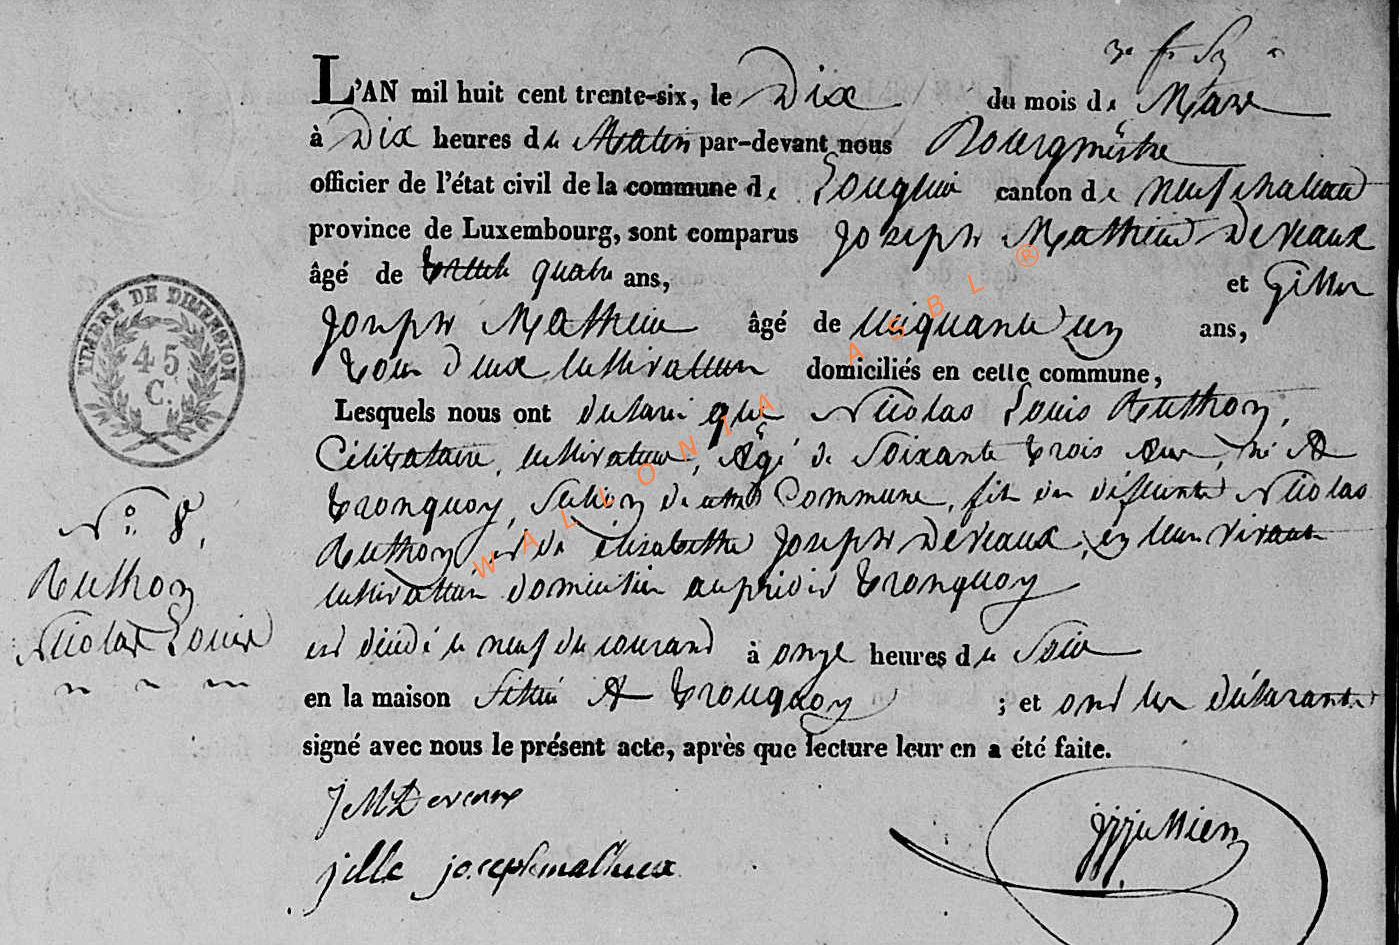 L'AN mil huit cent trente-six, le Dix du mois de Mars
à Dix heures du Matin par-devant nous Bourgmestre
officier de l'état civil de la commune de Longlier canton de neufchateau
province de Luxembourg, sont comparus Joseph Mathieu Deveaux
âgé de trente quatre ans, et Gilles
Joseph Mathieu âgé de cinquante un ans,
tous deux cultivateurs domiciliés en cette commune,
Lesquels nous ont déclaré que Nicolas Louis Authon,
Célibataire, cultivateur, Agé de Soixante trois Ans, né A
tronquoy, Section de cette Commune, fils des défunts Nicolas
Authon et de élisabethe Joseph Deveaux, en leur vivant
cultivateurs domiciliés au prédit tronquoy
est décédé le neuf du courand à onze heures du Soir
en la maison Située A tronquoy ; et ond les déclarants
signé avec nous le présent acte, après que lecture leur en a été faite.
TIMBRE DE DIMENSION
45
C.
N° 8,
Authon
Nicolas Louis
JM Deveaux
jille joseph mathieux
WALLONIA ASBL ®